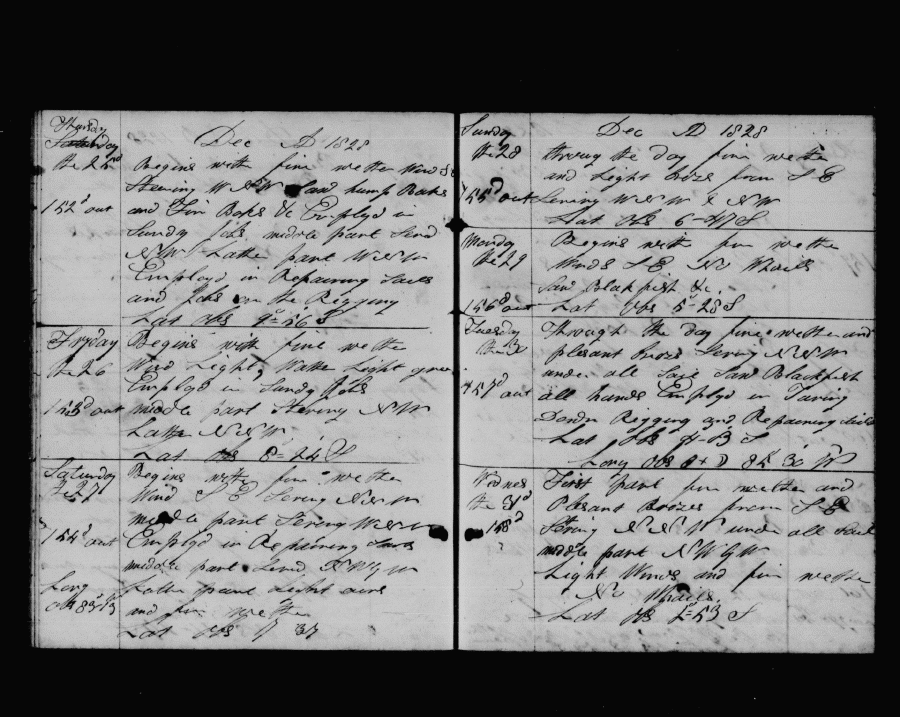 Dec AD 1828
Thursday
the 25
152d out
Begins with fine wether Wind SE
Stearing W NW Saw hump Baks
and Fin Baks &c Employd in
Sundy Jobs middle part Send
NW Latter part W N W
Employd in Repairing Sails
and Jobs on the Rigging
Lat Obs 9°=56 S
Fryday
the 26
153d out
Begins with fine wether
Wind Light, Watter Light green
Employd in Sundy Jobs
middle part Stering NW
Latter N N W
Lat Obs 8=24 S
Saturday
the 27
154d out
Long
Obs 83
Begins with fine wether
Wind S E Stering N W
middle part Stering W N W
Employd in Repairing Sails
middle part NW
Latter part Light airs
and fine wether
Lat Obs 37
Dec AD 1828
Sunday
the 28
155d out
throug the day fine wether
and Light brezs from S E
Stering W N W & N W
Lat Obs 6-47 S
Monday
the 29
156d out
Begins with fine wether
Winds S E No Whails
Saw Blackfish &c.
Lat Obs 5°-28 S
Tuesday
the 30
157d out
Through the day fine wether and
plesant brezs Stering N N W
under all Sail Saw Blackfish
all hands Employd in Taring
Down Rigging and Repairing Sails
Lat Obs 4-13 S
Long Obs 84 30 W
Wednes
the 31d
158d
First part fine wether and
Plesant Brezes from S E
Stering N N W under all Sail
middle part N W
Light Winds and fine wether
No Whails
Lat Obs 53 S